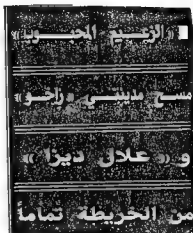 «الزعيم المحبوب»
مسح مدينتي «زاخو»
و «علال ديزا»
من الخريطة تماماً